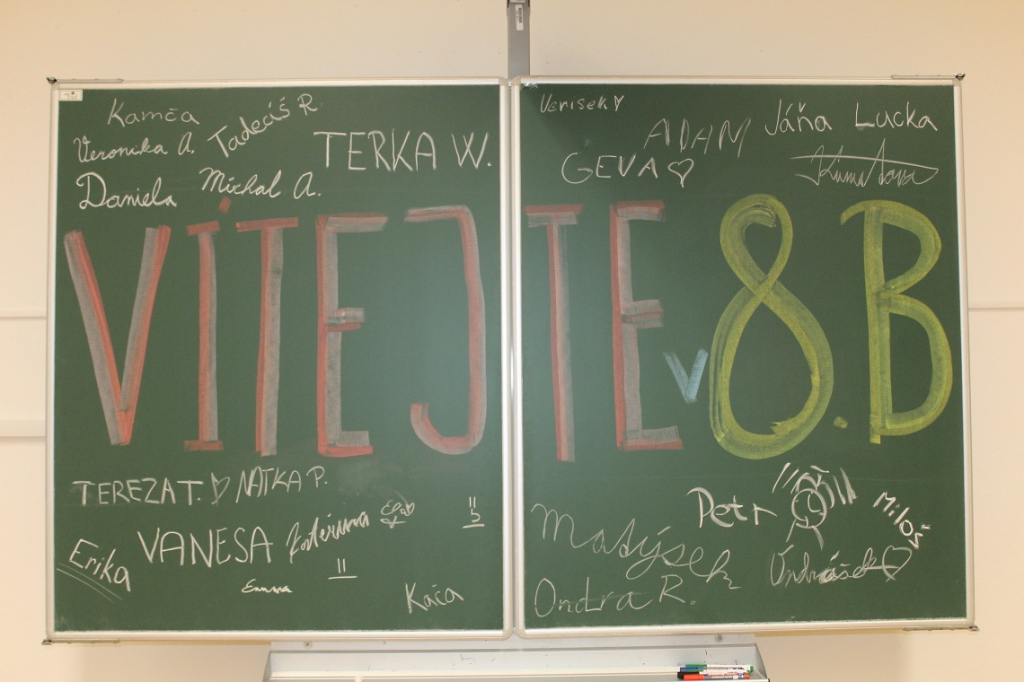 Kamča
Tadeáš R.
Veronika A.
TERKA W.
Daniela
Michal A.
Verisek
ADAM
Jáňa Lucka
GEVA
VÍTEJTE v 8.B
TEREZA T. NATKA P.
VANESA Kateřina
Erika
Emma
Káča
Petr
Miloš
Matýsek
Ondrášek
Ondra R.